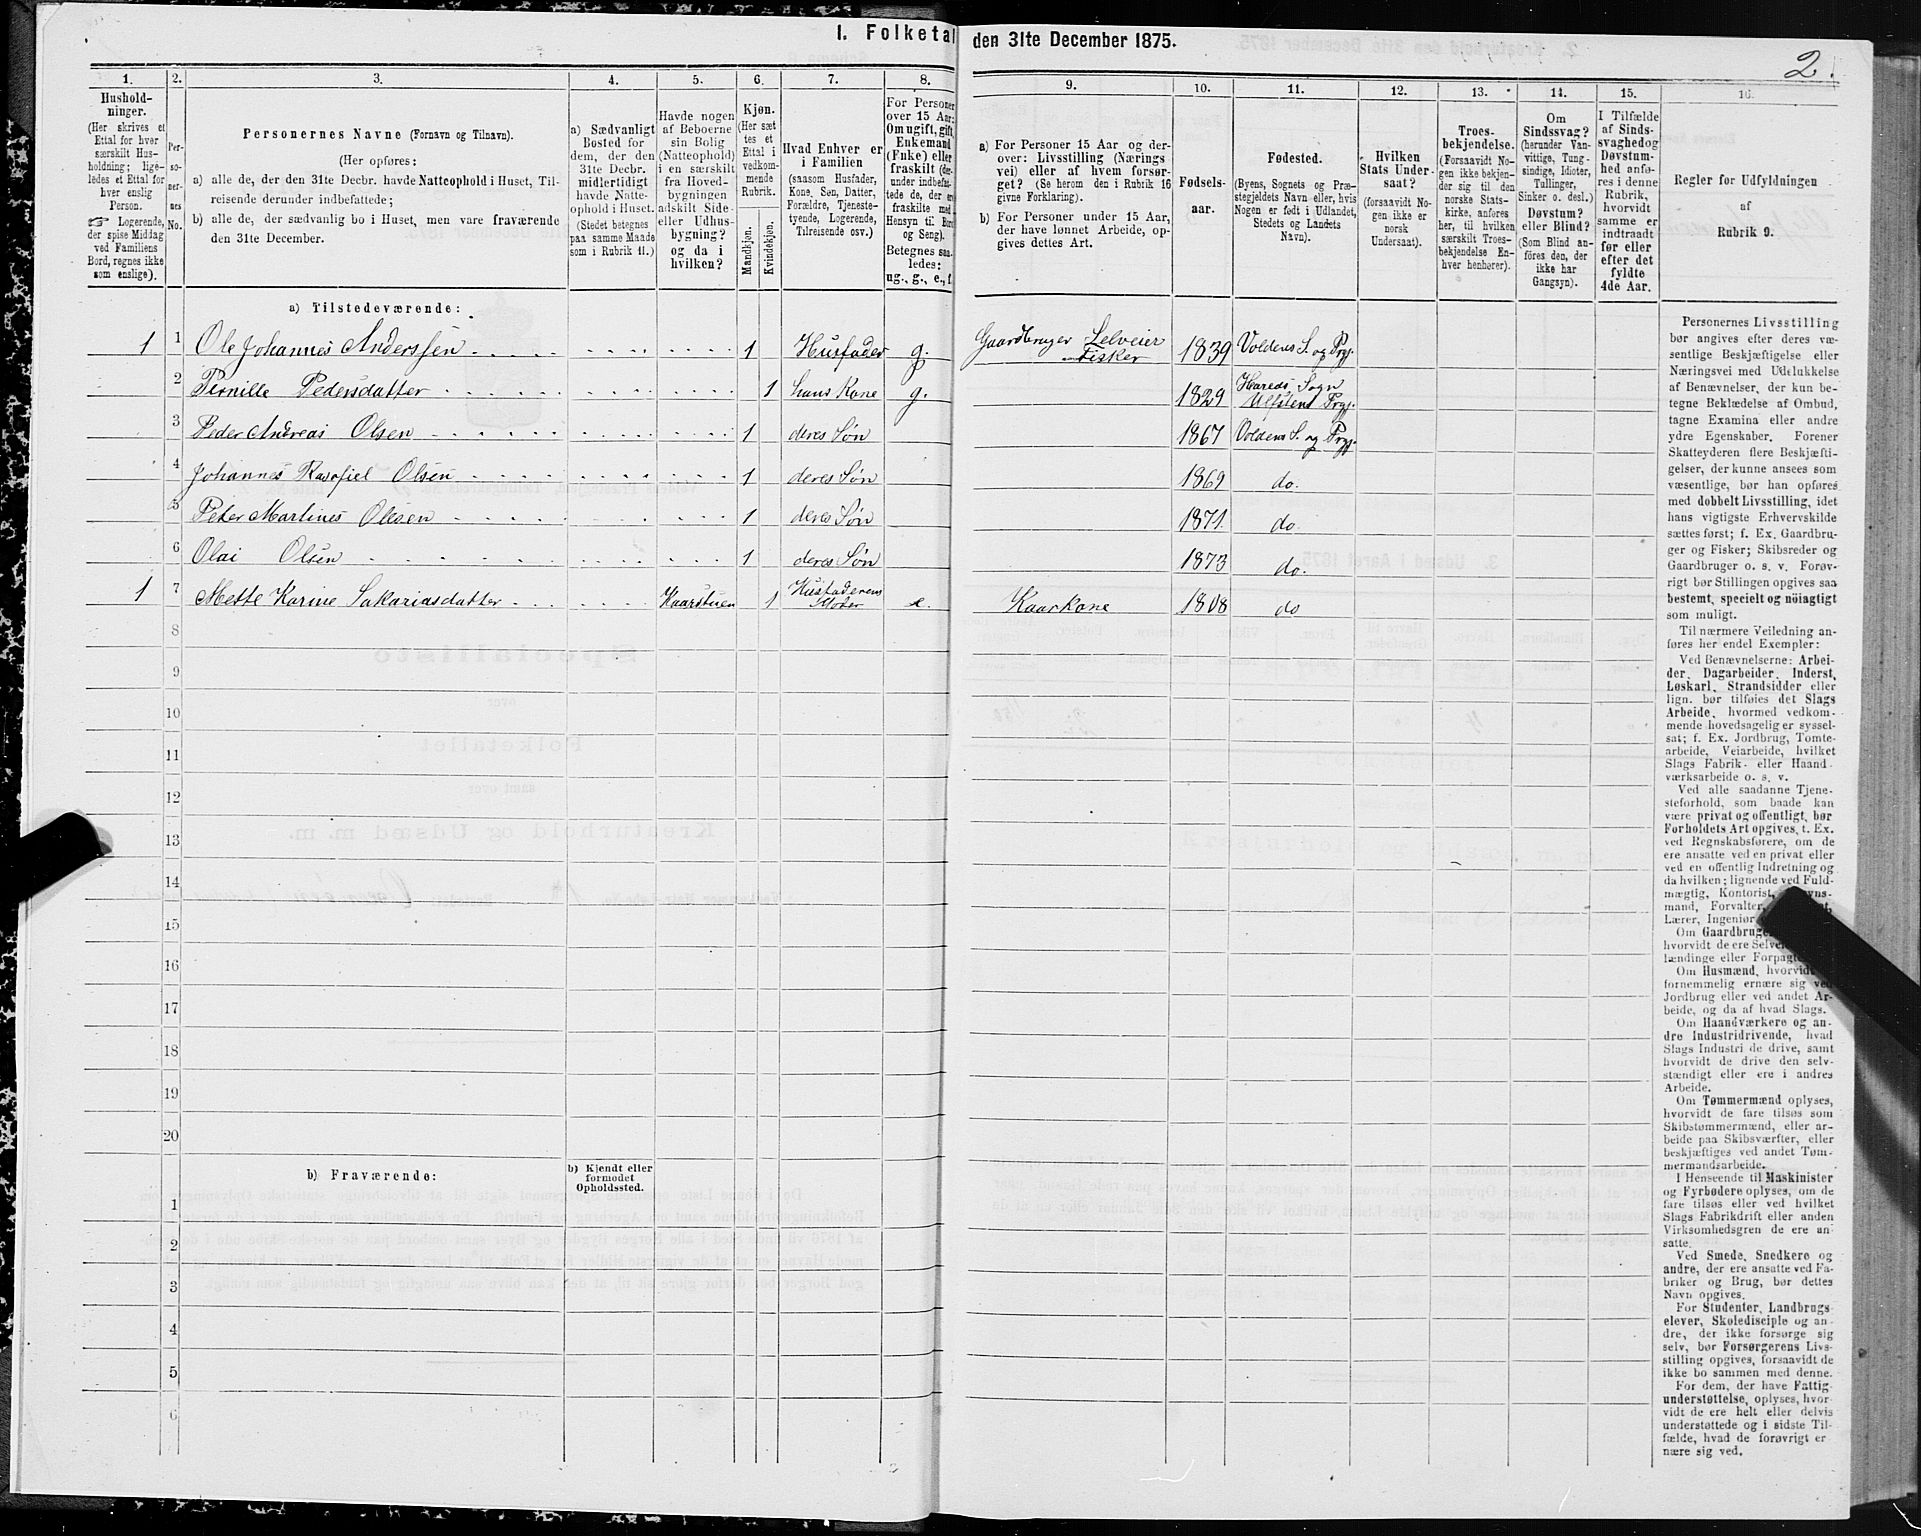 I. Folketal den 31te December 1875.
2.
1. 2. 3. 4. 5. 6. 7. 8. 9. 10. 11. 12. 13. 14. 15. 16.
Hushold-
ninger.
(Her skrives et
Ettal for hver
særskilt Hus-
holdning; lige-
ledes et Ettal for
hver enslig
Person.
☞ Logerende,
der spise Middag
ved Familiens
Bord, regnes ikke
som enslige).
Per-
so-
ner-
nes
No.
Personernes Navne (Fornavn og Tilnavn).
(Her opføres:
a) alle de, der den 31te Decbr. havde Natteophold i Huset, Til-
reisende derunder indbefattede;
b) alle de, der sædvanlig bo i Huset, men vare fraværende
den 31te December.
a) Sædvanligt
Bosted for
dem, der den
31te Decbr.
midlertidigt
havde Natte-
ophold i Huset.
(Stedet betegnes
paa samme Maade
som i Rubrik 11.)
Havde nogen
af Beboerne
sin Bolig
(Natteophold)
i en særskilt
fra Hoved-
bygningen
adskilt Side-
eller Udhus-
bygning?
og da i
hvilken?
Kjøn.
(Her sæt
tes et
Ettal i
vedkom-
mende
Rubrik.
Mandkjøn.
Kvindekjøn.
Hvad Enhver er
i Familien
(saasom Husfader,
Kone, Søn, Datter,
Forældre, Tjeneste-
tyende, Logerende,
Tilreisende osv.)
For Personer
over 15 Aar:
Om ugift, gift,
Enkemand
(Enke) eller
fraskilt (der-
under indbefat-
tede de, der er
fraskilte med
Hensyn til Bord
og Seng).
Betegnes saa-
ledes:
ug., g., e., f.
a) For Personer 15 Aar og der-
over: Livsstilling (Nærings
vei) eller af hvem forsør-
get? (Se herom den i Rubrik 16
givne Forklaring).
b) For Personer under 15 Aar,
der have lønnet Arbeide, op-
gives dettes Art.
Fødsels-
aar.
Fødested.
(Byens, Sognets og Præ-
stegjeldets Navn eller, hvis
Nogen er født i Udlandet,
Stedets og Landets
Navn).
Hvilken
Stats Under-
saat?
(forsaavidt No-
gen ikke er
norsk
Undersaat).
Troes-
bekjendelse.
(Forsaavidt No-
gen ikke bekjen-
der sig til den
norske Stats-
kirke, anføres
her, til hvilken
særskilt Troes-
bekjendelse En-
hver henhører).
Om
Sindssvag?
(herunder Van-
vittige, Tung-
sindige, Idioter,
Tullinger,
Sinker o. desl.)
Døvstum?
eller Blind?
(Som Blind an-
føres den, der
ikke har
Gangsyn).
I Tilfælde
af Sinds-
svaghedog
Døvstum-
hed anfø-
res i denne
Rubrik,
hvorvidt
samme er
indtraadt
før eller
efter det
fyldte
4de Aar.
Regler for Udfyldningen
af
Rubrik 9.
a) Tilstedeværende:
1 1 Ole Johannes Anderssen 1 Husfader g. Gaardbruger Selveier Fisker 1839 Voldens S. og Prgj.
2 Pernille Pedersdatter 1 hans Kone g. 1829 Hareds Sogn Ulfstens Prgj.
3 Peder Andreas Olsen 1 deres Søn 1867 Voldens S. og Prgj.
4 Johannes Olsen 1 deres Søn 1869 do.
5 Peter Martines Olsen 1 deres Søn 1871. do.
6 Olai Olsen 1 deres Søn 1873 do.
1 7 Mette Karine Sakariasdatter Kaarstuen 1 Husfaderens Moder e. Kaarkone 1808 do
8
9
10
11
12
13
14
15
16
17
18
19
20
b) Fraværende:
b) Kjendt eller
formodet
Opholdssted.
1
2
3
4
5
6
Personernes Livsstilling
bør angives efter deres væ-
sentlige Beskjæftigelse eller
Næringsvei med Udelukkelse
af Benævnelser, der kun be-
tegne Beklædelse af Ombud,
tagne Examina eller andre
ydre Egenskaber. Forener
Skatteyderen flere Beskjæfti-
gelser, der kunne ansees som
væsentlige, bør han opføres
med dobbelt Livsstilling, idet
hans vigtigste Erhvervskilde
sættes først; f. Ex. Gaardbru-
ger og Fisker; Skibsreder og
Gaardbruger o. s. v. Forøv-
rigt bør Stillingen opgives saa
bestemt, specielt og nøiagtigt
som muligt.
Til nærmere Veiledning an-
føres her endel Exempler:
Ved Benævnelserne: Arbei-
der, Dagarbeider, Inderst,
Løskarl, Strandsidder eller
lign. bør tilføies det Slags
Arbeide, hvormed vedkom-
mende hovedsagelig er syssel-
sat; f. Ex. Jordbrug, Tomte-
arbeide, Veiarbeide, hvilket
Slags Fabrik- eller Haand-
værksarbeide o. s. v.
Ved alle saadanne Tjene-
steforhold, som baade kan
være privat og offentligt, bør
Forholdets Art opgives, t. Ex.
ved Regnskabsførere, om de
ere ansatte ved en privat eller
ved en offentlig Indretning og
da hvilken; lignende ved Fuld-
mægtig, Kontorist,
mand, Forvalter,
Lærer, Ingeniør
Om Gaardbruge
hvorvidt de ere Selve
lændinge eller Forpagt
Om Husmænd, hvorvidt
fornemmelig ernære sig ved
Jordbrug eller ved andet Ar-
beide, og da af hvad Slags.
Om Haandværkere og an-
dre Industridrivende, hvad
Slags Industri de drive, samt
hvorvidt de drive den selv-
stændigt eller ere i andres
Arbeide.
Om Tømmermænd oplyses,
hvorvidt de fare tilsøs som
Skibstømmermænd, eller ar-
beide paa Skibsværfter, eller
beskjæftiges ved andet Tøm-
mermandsarbeide.
I Henseende til Maskinister
og Fyrbødere oplyses, om de
fare tilsøs eller ved hvilket
Slags Fabrikdrift eller anden
Virksomhedsgren de ere an-
satte.
Ved Smede, Snedkere og
andre, der ere ansatte ved Fa-
briker og Brug, bør dettes
Navn opgives.
For Studenter, Landbrugs-
elever, Skoledisciple og an-
dre, der ikke forsørge sig
selv, bør Forsørgerens Livs-
stilling opgives, forsaavidt de
ikke bo sammen med denne.
For dem, der have Fattig-
understøttelse, oplyses, hvor-
vidt de ere helt eller delvis
understøttede og i sidste Til-
fælde, hvad de forøvrigt er-
nære sig ved.